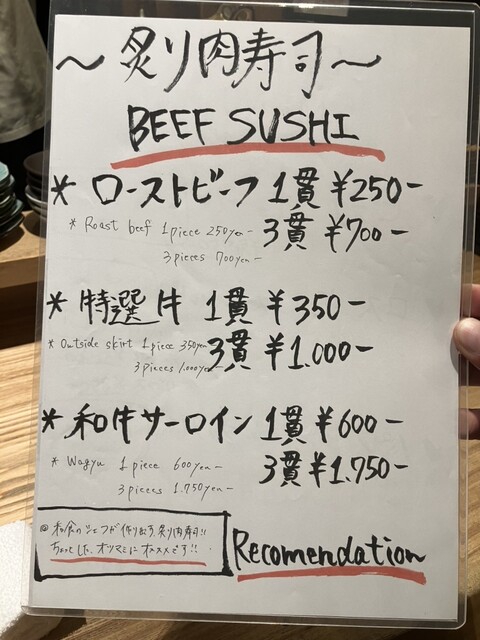 ～炙り肉寿司～
BEEF SUSHI
* ローストビーフ 1貫 ¥250-
* Roast beef 1piece 250yen- 3貫 ¥700-
3pieces 700yen-
* 特選牛 1貫 ¥350-
* Outside skirt 1piece 350yen 3貫 ¥1.000-
3pieces 1.000yen-
* 和牛サーロイン 1貫 ¥600-
* Wagyu 1piece 600yen- 3貫 ¥1.750-
3pieces 1.750yen-
◎和食のシェフが作り出す、炙り肉寿司!!
ちょっとした、オツマミにオススメです!!
Recomendation